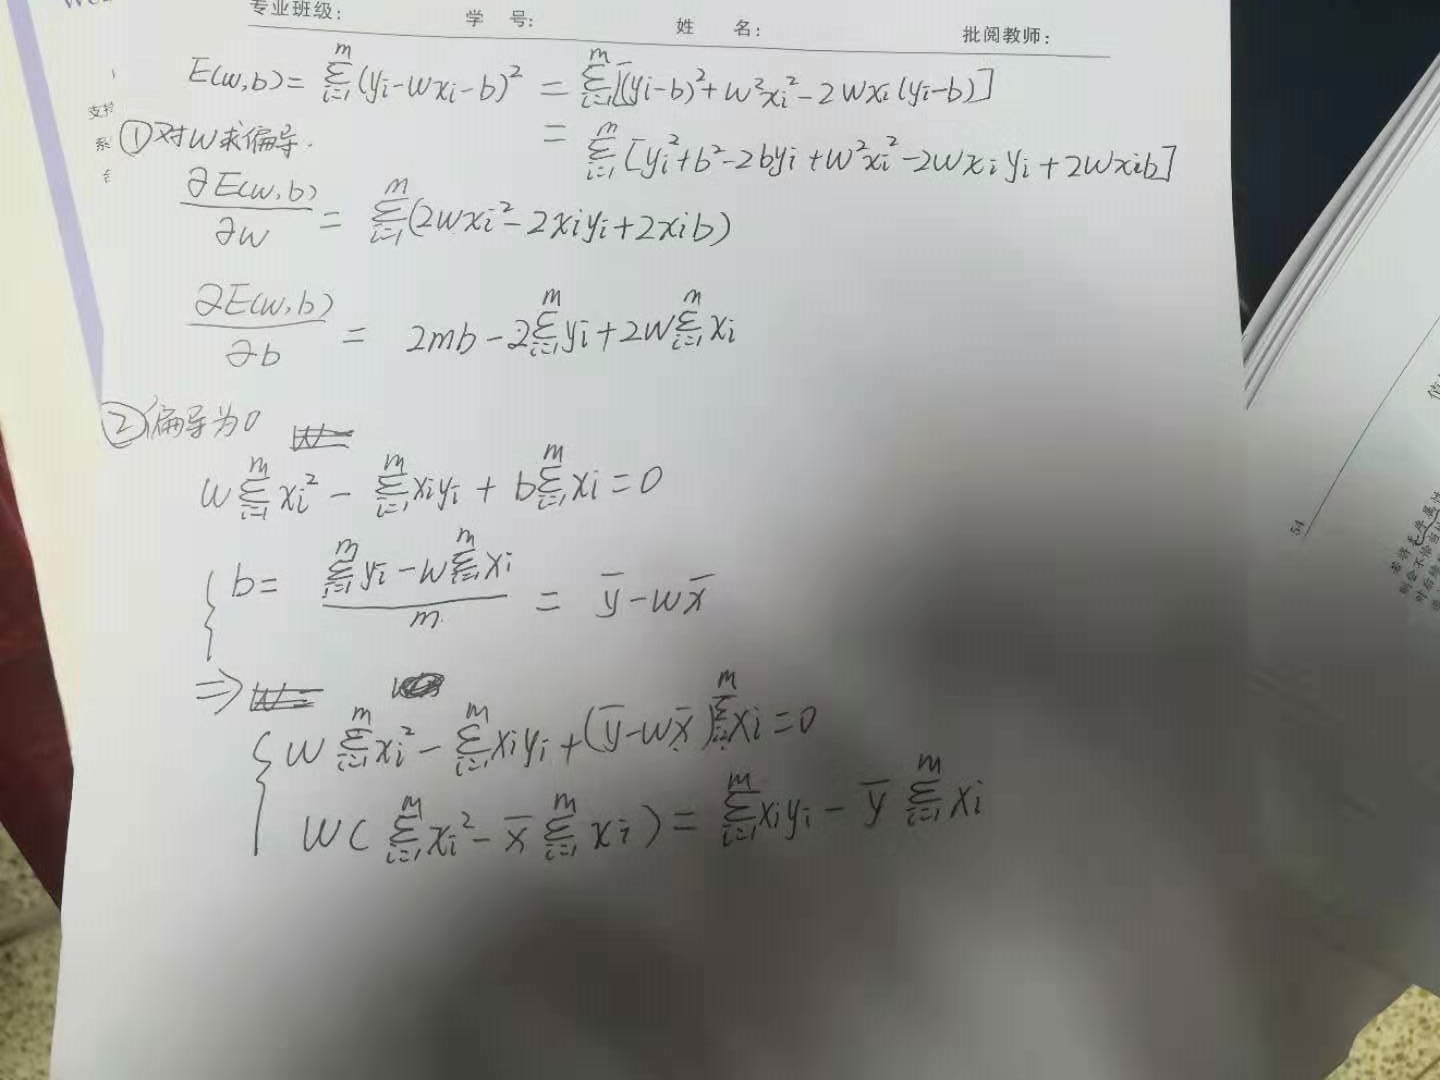 专业班级： 学 号： 姓 名： 批阅教师：
E(w,b)= Σ_{i=1}^{m}(yi-wxi-b)² = Σ_{i=1}^{m}[(yi-b)²+w²xi²-2wxi(yi-b)]
= Σ_{i=1}^{m}[yi²+b²-2byi+w²xi²-2wxiyi+2wxib]
①对w求偏导.
∂E(w,b)/∂w = Σ_{i=1}^{m}(2wxi²-2xiyi+2xib)
∂E(w,b)/∂b = 2mb-2Σ_{i=1}^{m}yi+2wΣ_{i=1}^{m}xi
②偏导为0
wΣ_{i=1}^{m}xi² - Σ_{i=1}^{m}xiyi + bΣ_{i=1}^{m}xi=0
{ b= (Σ_{i=1}^{m}yi-wΣ_{i=1}^{m}xi)/m = ȳ-wx̄
⇒
{ wΣ_{i=1}^{m}xi²-Σ_{i=1}^{m}xiyi+(ȳ-wx̄)Σ_{i=1}^{m}xi=0
w(Σ_{i=1}^{m}xi²-x̄Σ_{i=1}^{m}xi)=Σ_{i=1}^{m}xiyi-ȳΣ_{i=1}^{m}xi
54